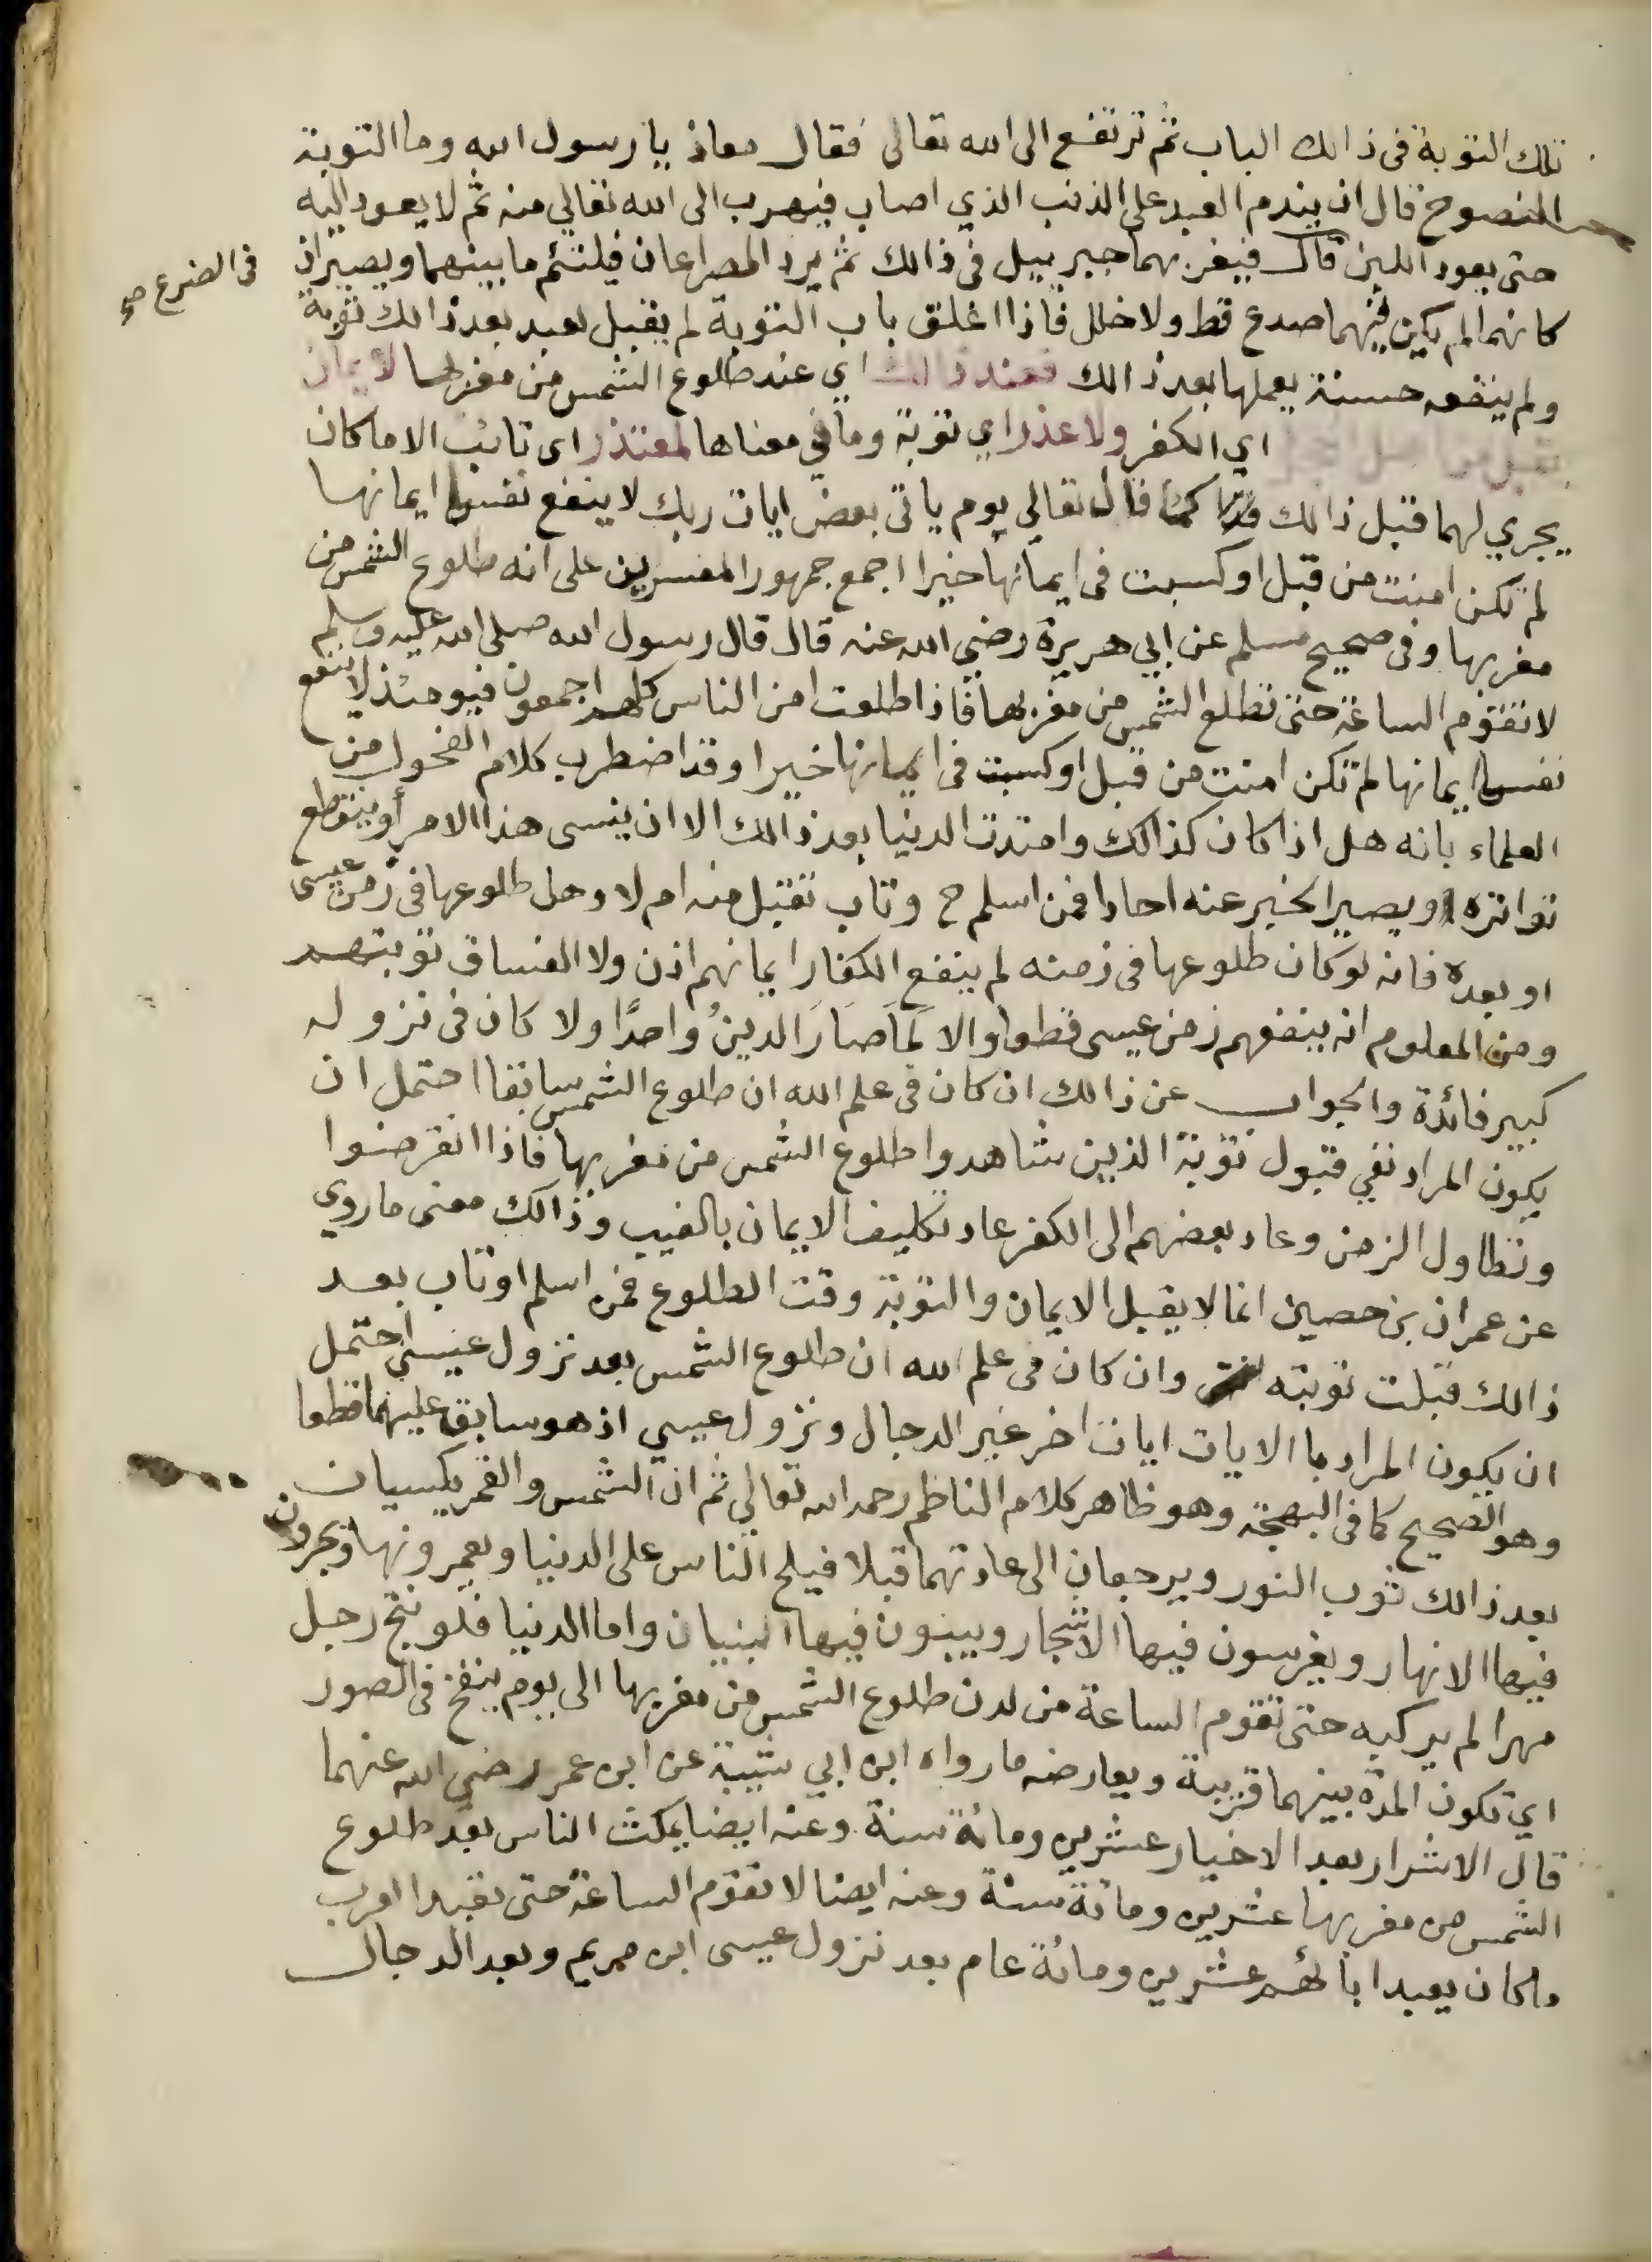 تلك التوبة فى ذالك الباب ثم ترتفع الى الله تعالى فقال معاذ يا رسول الله وما التوبة
المنصوح قال ان يندم العبد على الذنب الذي اصاب فيهرب الى الله تعالي منه ثم لا يعود اليه
حتى يعود اللبن قال فيغربهما جبرييل فى ذالك ثم يرد المصراعان فيلتئم ما بينهما ويصيران
فى الضرع صح
كانهما لم يكن فيهما صدع قط ولا خلل فاذا اغلق باب التوبة لم يقبل لعبد بعد ذالك توبة
ولم ينفعه حسنة يعملها بعد ذالك فعند ذالك اي عند طلوع الشمس من مغربها لا يمان
تقبل من اي الكفر ولا عذر اي توبة وما في معناها لمعتذر اى تائب الا ما كان
يجري لهما قبل ذالك كما قال تعالي يوم ياتى بعض ايات ربك لا ينفع نفسا ايمانها
لم تكن امنت من قبل او كسبت فى ايمانها خيرا اجمع جمهور المفسرين على انه طلوع الشمس من
مغربها وفى صحيح مسلم عن ابي هريرة رضي الله عنه قال قال رسول الله صلى الله عليه وسلم
لا تقوم الساعة حتى تطلع الشمس من مغربها فاذا طلعت امن الناس كلهم اجمعون فيومئذ لا ينفع
نفسا ايمانها لم تكن امنت من قبل او كسبت فى ايمانها خيرا وقد اضطرب كلام الفحول من
العلماء بانه هل اذا كان كذالك وامتدت الدنيا بعد ذالك الا ان ينسى هذا الامر أو ينقطع
تواتره ويصير الخبر عنه احادا فمن اسلم ح وتاب تقبل منه ام لا وهل طلوعها فى زمن عيسى
او بعده فانه لو كان طلوعها فى زمنه لم ينفع الكفار ايمانهم اذن ولا الفساق توبتهم
ومن المعلوم انه ينفعهم زمن عيسى قطعا والا لَمَا صَارَ الدينُ واحدًا ولا كان فى نزوله
كبير فائدة والجواب عن ذالك ان كان فى علم الله ان طلوع الشمس سابقا احتمل ان
يكون المراد نفي قبول توبة الذين شاهدوا طلوع الشمس من مغربها فاذا انقرضوا
وتطاول الزمن وعاد بعضهم الى الكفر عاد تكليف الايمان بالغيب وذالك معنى ما روي
عن عمران بن حصين انما لا يقبل الايمان والتوبة وقت الطلوع فمن اسلم او تاب بعد
ذالك قبلت توبته وان كان فى علم الله ان طلوع الشمس بعد نزول عيسى احتمل
ان يكون المراد با الايات ايات اخر غير الدجال ونزول عيسي اذ هو سابق عليهما قطعا
وهو الصحيح كما فى البهجة وهو ظاهر كلام الناظم رحمه الله تعالي ثم ان الشمس والقمر يكسيان
بعد ذالك ثوب النور ويرجعان الى عادتهما قبلا فيلح الناس على الدنيا ويعمرونها ويجرون
فيها الانهار ويغرسون فيها الاشجار ويبنون فيها البنيان واما الدنيا فلو نتج رجل
مهرا لم يركبه حتى تقوم الساعة من لدن طلوع الشمس من مغربها الى يوم ينفخ فى الصور
اي تكون المدة بينهما قريبة ويعارضه ما رواه ابن ابي شيبة عن ابن عمر رضي الله عنهما
قال الاشرار بعد الاخيار عشرين ومائة سنة وعنه ايضا يمكث الناس بعد طلوع
الشمس من مغربها عشرين ومائة سنة وعنه ايضا لا تقوم الساعة حتى تعبد العرب
ما كان يعبد ابائهم عشرين ومائة عام بعد نزول عيسى ابن مريم وبعد الدجال